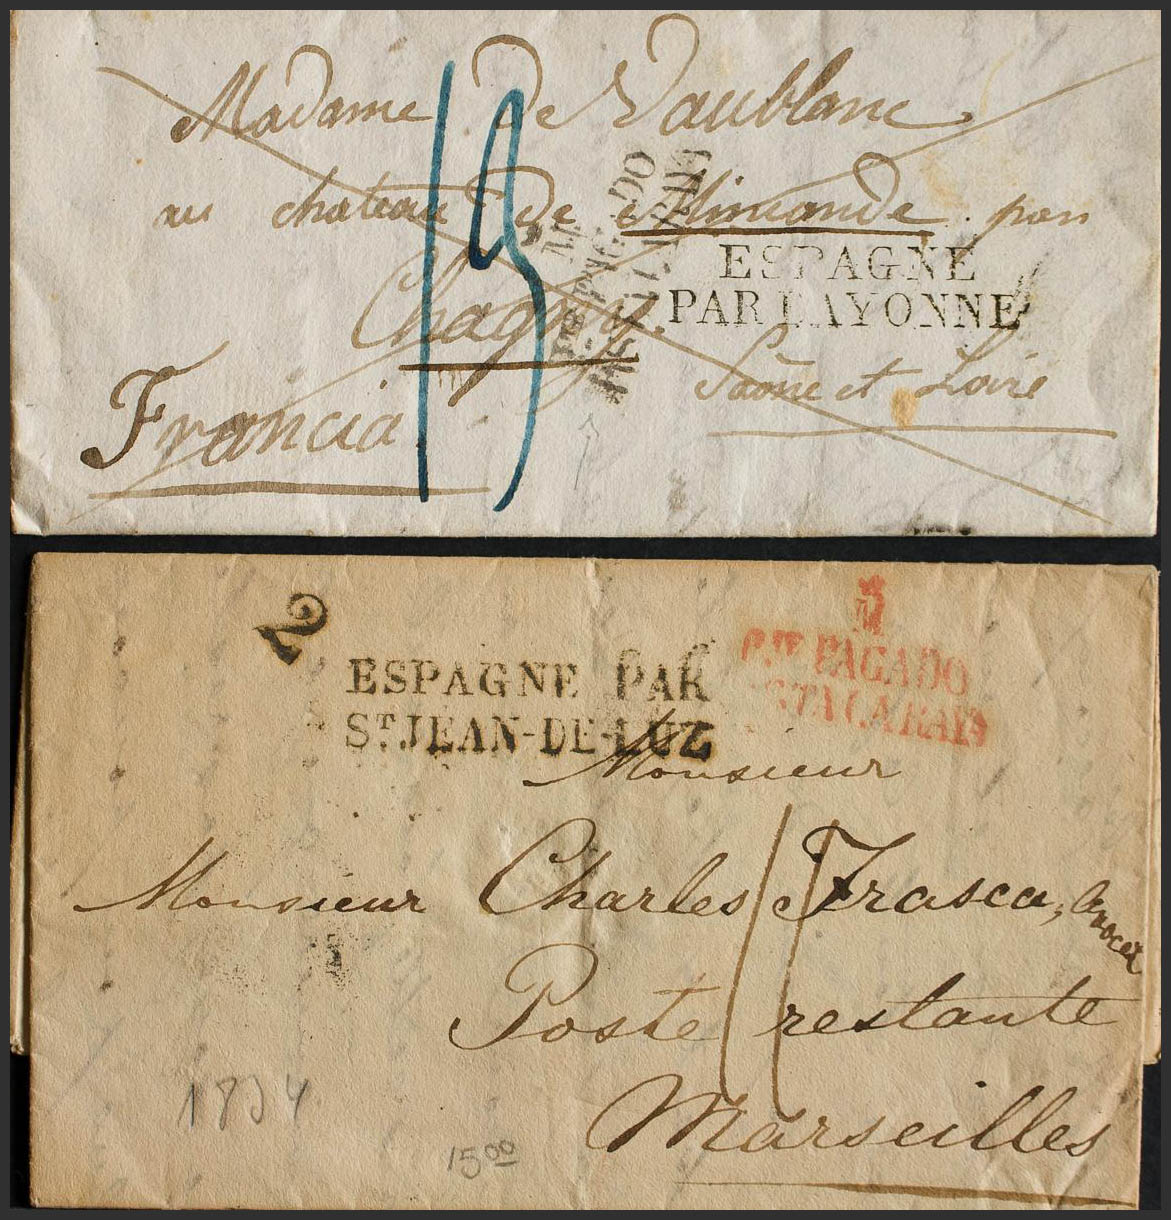 Madame De Vaublanc
au chateau De Mimande par
Chagny.
Saône et Loire
Francia
19
ESPAGNE
PAR BAYONNE
M
PTE PAGADO
HASTA LA RAYA
2
ESPAGNE PAR
ST JEAN-DE-LUZ
M
PTE PAGADO
STA LA RAYA
Monsieur
Monsieur Charles Frasca, avocat
Poste restante
Marseilles
11
1834
15 00